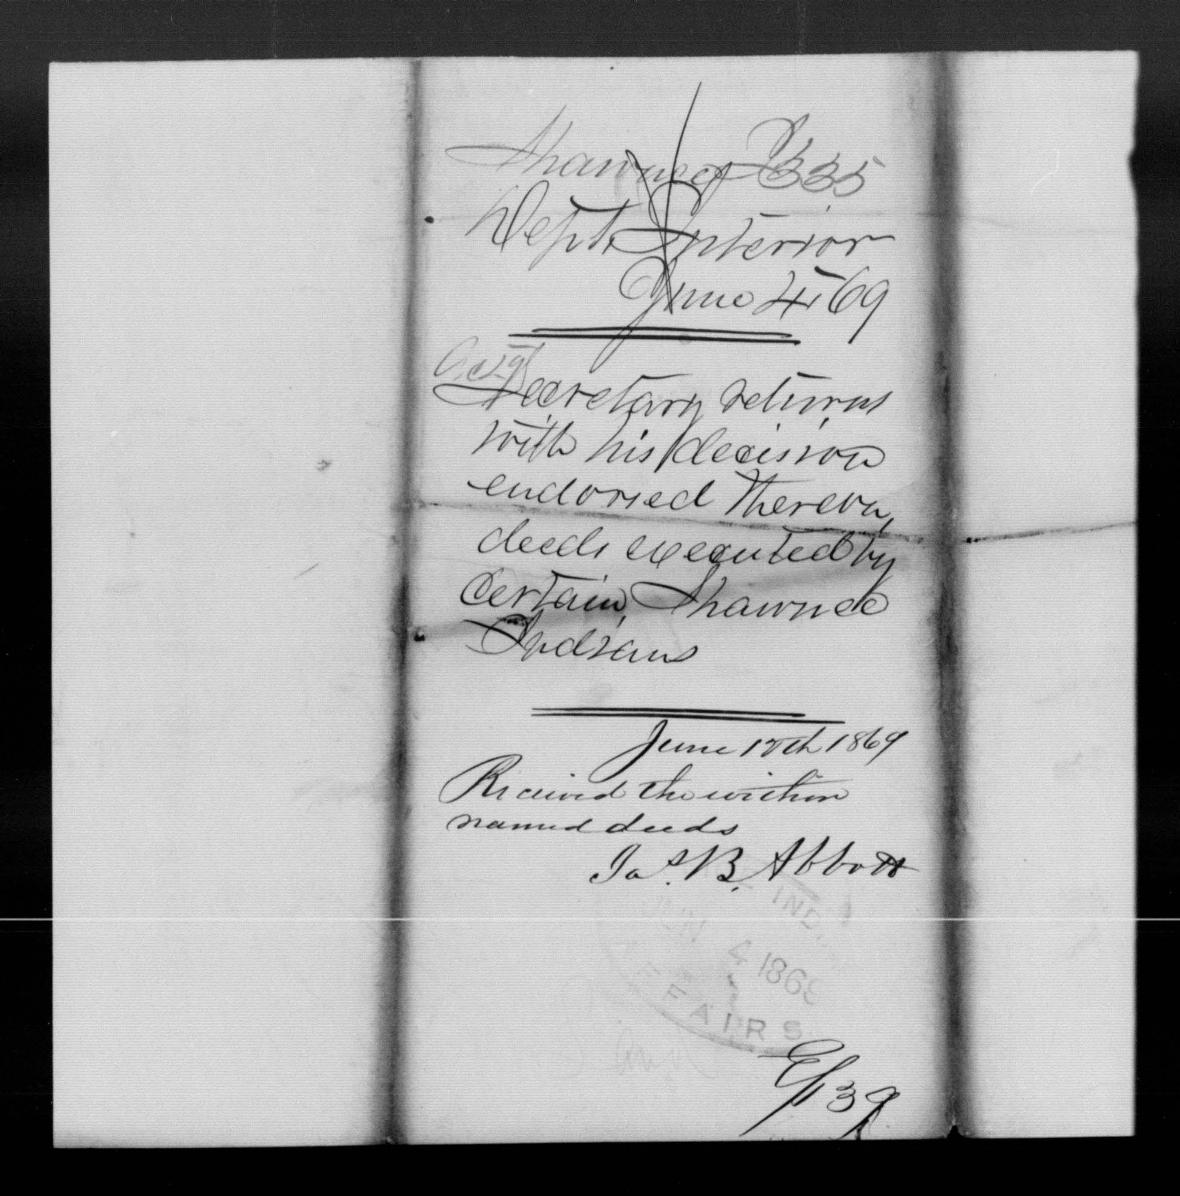 Shawnee I 335
Dept. Interior
June 4, 69
Secretary returns
with his decision
endorsed thereon,
deeds executed by
certain Shawnee
Indians
June 12th 1869
Received the within
named deeds
Jas. B. Abbott
IND.
JUN 4 1869
AFFAIRS